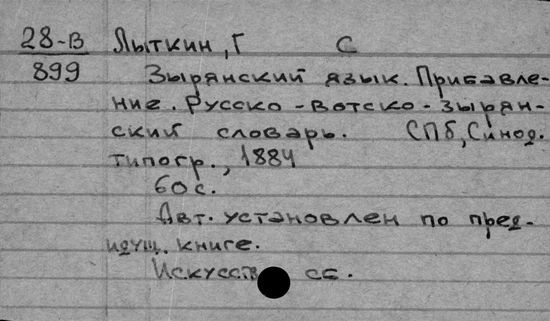 28-В Лыткин, Г С
899
Зырянский язык. Прибавле-
ние. Русско-Вотско-Зырян-
ский словарь. СПб, Синод.
типогр., 1884
60 с.
Авт. установлен по пред-
идущ. книге.
сб.